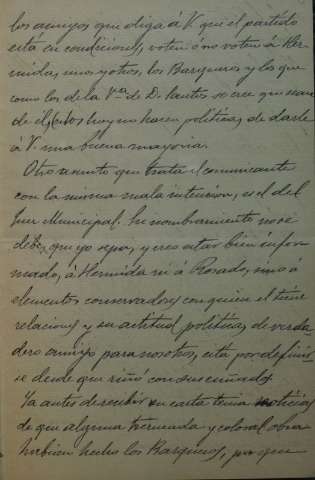 los amigos que diga á V. que el partido
está en condiciones, voten ó no voten á Her-
mida, unos y otros, los Barqueros y los que
como los de la V.ª de D. Santos se cree que sean
de él, (estos hoy no hacen política) de darle
á V. una buena mayoria.
Otro asunto que trata el comunicante
con la misma mala intención, es el del
Juez Municipal. Su nombramiento no se
debe, que yo sepa, y creo estar bien infor-
mado, á Hermida ni á Rosado, sino á
elementos conservadores con quien el tiene
relaciones y su actitud política, de verda
dero amigo para nosotros, está por definir
se desde que riñó con sus cuñados
Ya antes de recibir su carta tenia noticias
de que alguna tremenda y colosal obra
habian hecho los Barqueros, por que